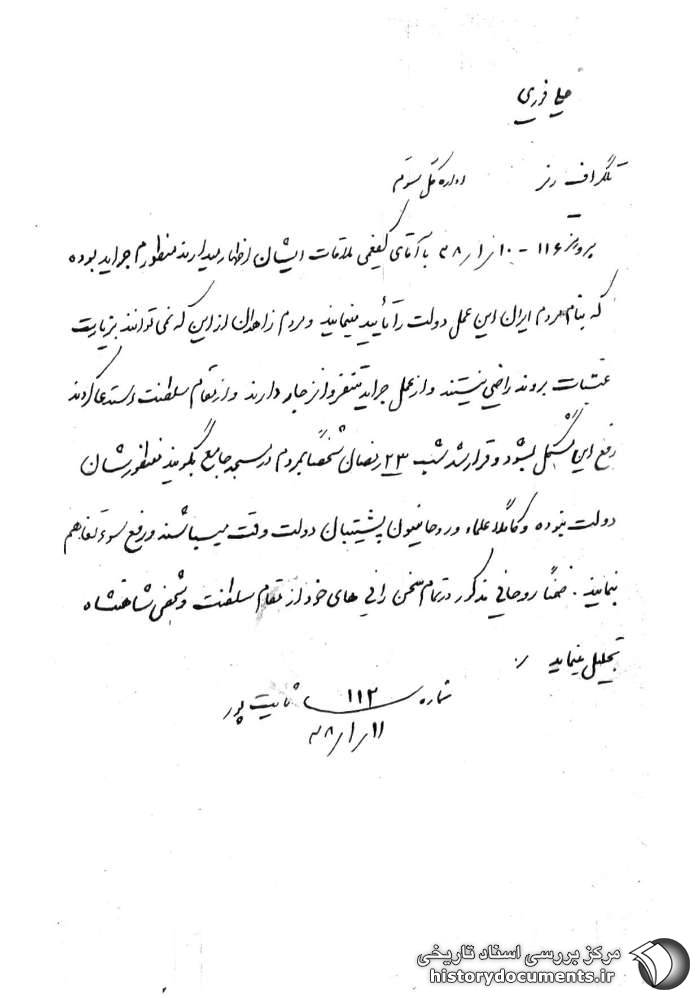 خیلی فوری
تلگراف رمز اداره کل سوم
پرو ۱۱۶ – ۱۰ر۱ر۳۸ با آقای کفعمی ملاقات ایشان اظهار میدارند منظورم جراید بوده
که بنام مردم ایران این عمل دولت را تأیید مینمایند و مردم زاهدان از این که نمی توانند بزیارت
عتبات بروند راضی نیستند و از عمل جراید متنفر و انزجار دارند و از مقام سلطنت استدعا کردند
رفع این مشکل بشود و قرار شد شب ۲۳ رمضان شخصاً بمردم در مسجد جامع بگویند منظورشان
دولت نبوده و کاملاً علماء و روحانیون پشتیبان دولت وقت میباشند و رفع سوء تفاهم
بنمایند. ضمناً روحانی مذکور در تمام سخن رانی های خود از مقام سلطنت و شخص شاهنشاه
تجلیل مینماید ./
شماره ۱۱۲
۱۱ر۱ر۳۸
مرکز بررسی اسناد تاریخی
historydocuments.ir